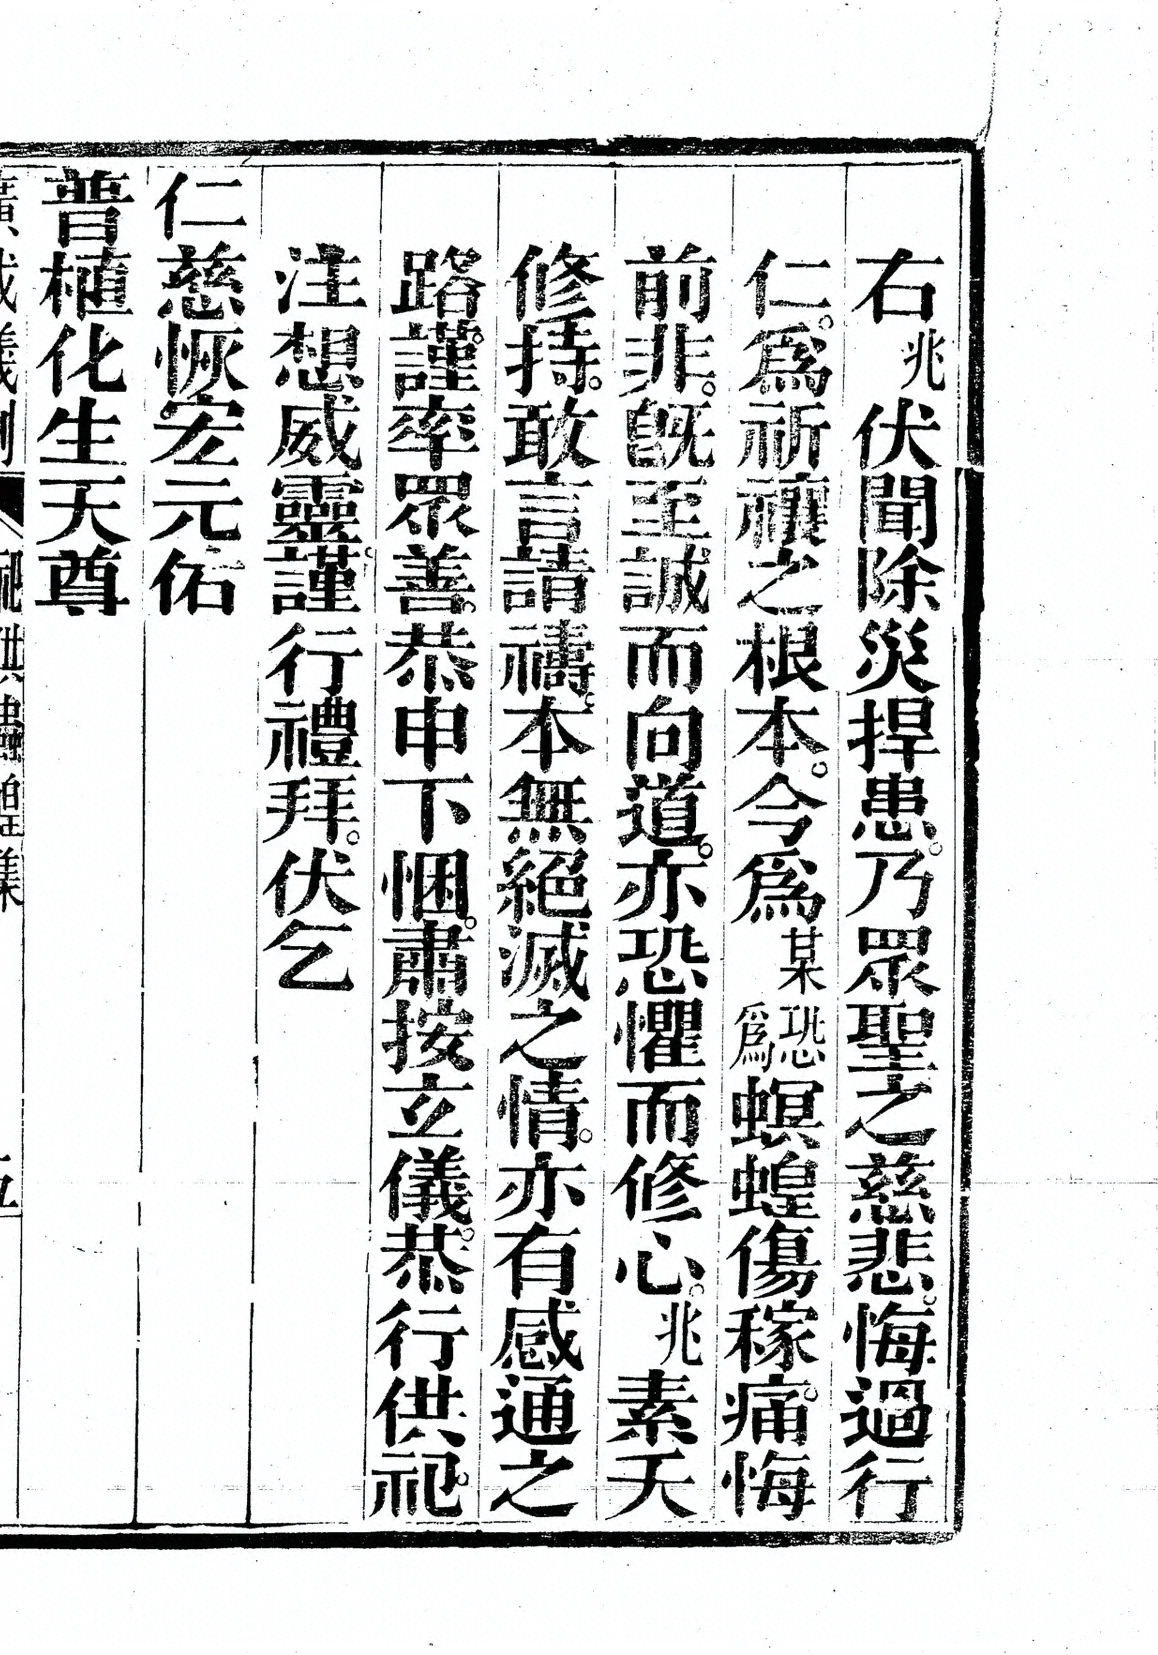 右兆伏聞除災捍患。乃眾聖之慈悲。悔過行
仁。爲祈禳之根本。今爲某恐爲螟蝗傷稼。痛悔
前非。旣至誠而向道。亦恐懼而修心。兆素天
修持。敢言請禱。本無絕滅之情。亦有感通之
路。謹率眾善。恭申下悃。肅按立儀。恭行供祀。
注想威靈。謹行禮拜。伏乞
仁慈恢宏元佑
普植化生天尊
廣成儀制 祀供蟲蝗集 五